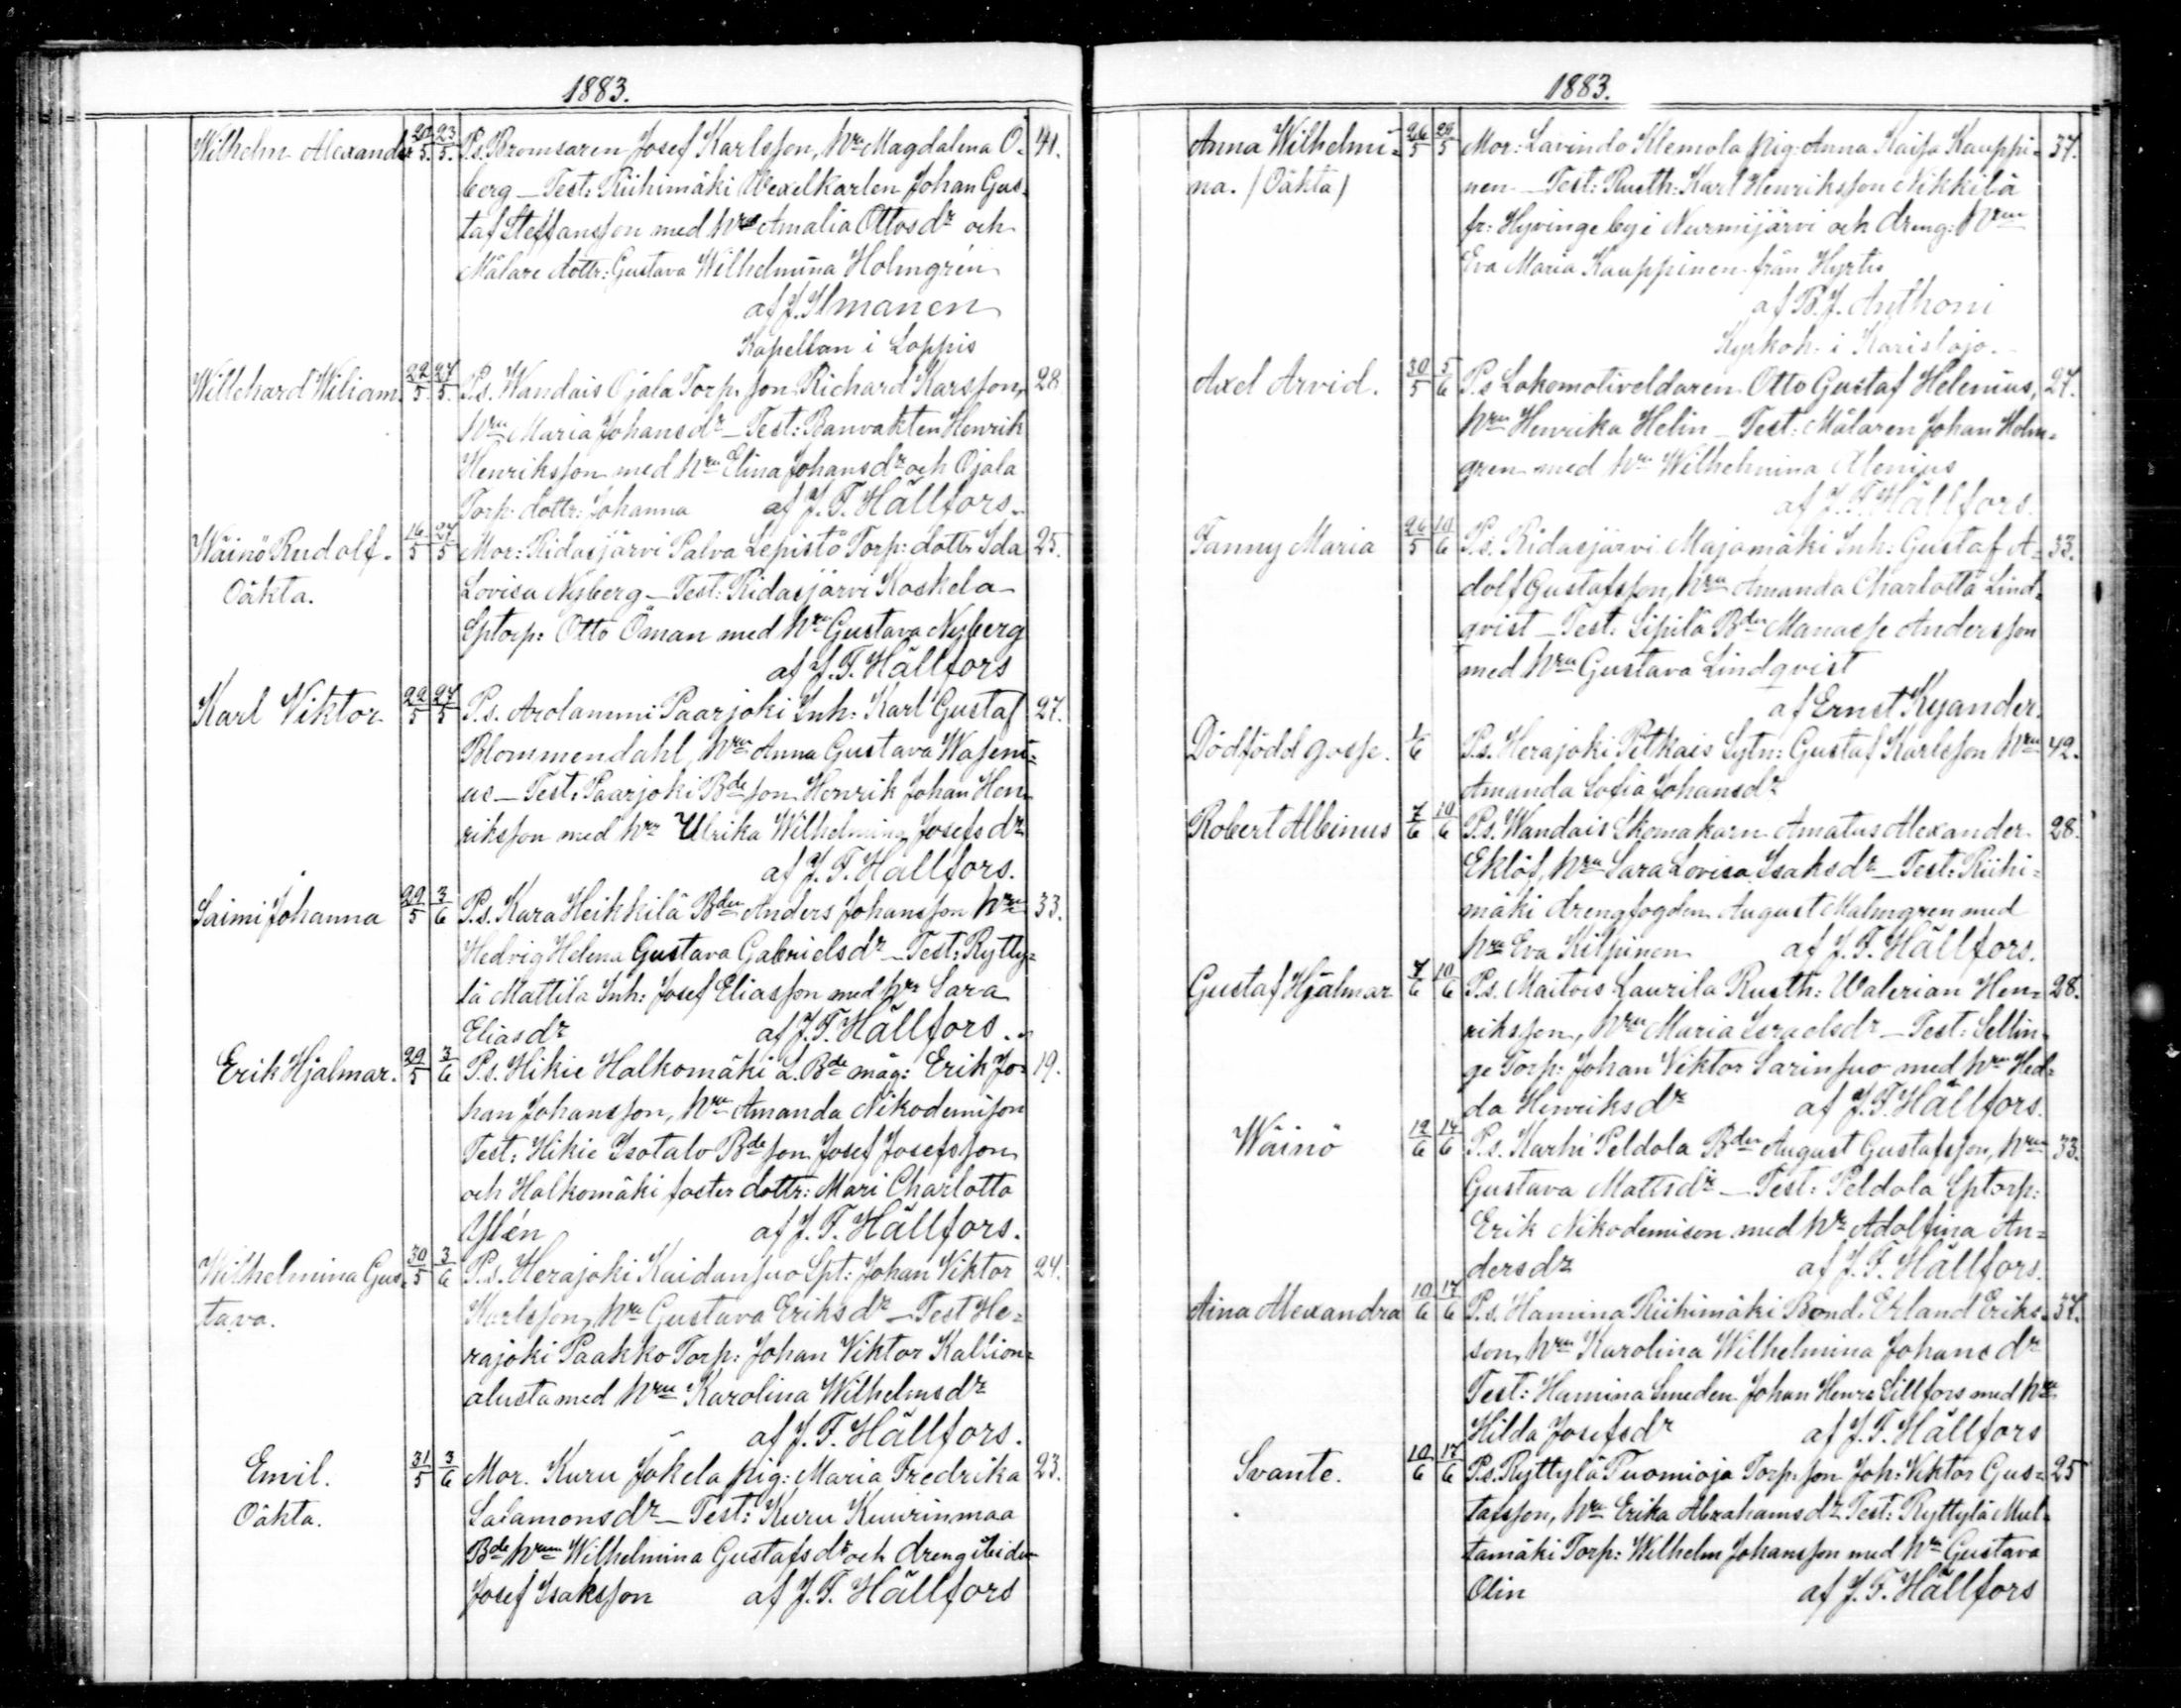 1883.
Wilhelm Alexander 20/5. 23/5. P.s. Bromsaren Josef Karlsson, hru Magdalena Ö- 41.
berg – Test: Riihimäki Wexelkarlen Johan Gus-
taf Steffansson med hru Amalia Ottosdr och
Målare dottr: Gustava Wilhelmina Holmgrén
af J. Ilmanen
Kapellan i Loppis
Willehard Wiliam. 22/5. 27/5. P.s. Wandais Ojala Torp. son Richard Karsson, 28
hru Maria Johansdr – Test: Banvakten Henrik
Henriksson med hru Elina Johansdr och Ojala
Torp. dottr: Johanna af J. F. Hällfors.
Wäinö Rudolf. 16/5 27/5 Mor: Ridasjärvi Palva Lepistö Torp: dottr Ida 25.
Oäkta. Lovisa Nyberg – Test: Ridasjärvi Koskela
Sptorp: Otto Öman med hru Gustava Nyberg
af J. F. Hällfors
Karl Viktor 22/5 27/5 P.s. Arolammi Paarjoki Inh: Karl Gustaf 27.
Blommendahl, hru Anna Gustava Waseni=
us – Test: Paarjoki Bde son Henrik Johan Hen-
riksson med hru Ulrika Wilhelmina Josefsdr
af J. F. Hällfors.
Saimi Johanna 29/5 3/6 P.s. Kara Heikkilä Bden Anders Johansson hru 33.
Hedvig Helena Gustava Gabrielsdr – Test: Rytty=
lä Mattila Inh: Josef Eliasson med hru Sara
Eliasdr af J. F. Hällfors.
Erik Hjalmar. 29/5 3/6 P.s. Hikie Halkomäki L. Bde måg: Erik Jo- 19.
han Johansson, hru Amanda Nikodemison
Test: Hikie Isotalo Bde son Josef Josefsson
och Halkomäki foster dottr: Mari Charlotta
Ylén af J. F. Hällfors.
Wilhelmina Gus- 30/5 3/6 P.s. Herajoki Kaidansuo Spt: Johan Viktor 24.
tava. Karlsson, hru Gustava Eriksdr – Test He=
rajoki Paakko Torp: Johan Viktor Kallion=
alusta med hru Karolina Wilhelmsdr
af J. F. Hällfors.
Emil. 31/5 3/6 Mor. Kuru Jokela pig: Maria Fredrika 23.
Oäkta. Salamonsdr – Test: Kuru Kuurinmaa
Bde hrun Wilhelmina Gustafsdr och dreng
Josef Isaksson af J. F. Hällfors
1883.
Anna Wilhelmi= 26/5 29/5 Mor: Lavindo Klemola pig: Anna Kaisa Kauppi= 37.
na. (Oäkta) nen – Test: Rusth: Karl Henriksson Nikkilä
fr: Hyvinge by i Nurmijärvi och dreng: hrun
Eva Maria Kauppinen från Hyrtis
af B. J. Anthoni
Kyrkoh: i Karislojo.
Axel Arvid. 30/5 5/6 P.s Lokomotiveldaren Otto Gustaf Helenius, 27.
hru Henrika Helin – Test: Målaren Johan Holm=
gren med hru Wilhelmina Alenius
af J. F. Hällfors.
Fanny Maria 26/5 10/6 P.s. Ridasjärvi Majamäki Inh: Gustaf A= 33.
dolf Gustafsson, hru Amanda Charlotta Lind=
qvist – Test: Sipilä Bden Manasse Andersson
med hru Gustava Lindqvist
af Ernst Kyander.
Dödfödd gosse. 1/6 P.s. Herajoki Petkais Sytn: Gustaf Karlsson hru 42.
Amanda Sofia Johansdr
Robert Albinus 7/6 10/6 P.s. Wandais Skomakarn Amatus Alexander 28.
Eklöf, hru Sara Lovisa Isaksdr – Test: Riihi=
mäki drengfogden August Malmgren med
hru Eva Kilpinen af J. F. Hällfors.
Gustaf Hjalmar 7/6 10/6 P.s. Maitois Laurila Rusth: Walerian Hen= 28.
riksson, hru Maria Israelsdr – Test: Sellin-
ge Torp: Johan Viktor Sarinsuo med hru Hed=
da Henriksdr af J. F. Hällfors.
Wäinö 12/6 14/6 P.s. Karhi Peldola Bden August Gustafsson, hru 33.
Gustava Mattsdr – Test: Peldola Sptorp:
Erik Nikodemison med hru Adolfina An=
dersdr af J. F. Hällfors.
Aina Alexandra 10/6 17/6 P.s. Hamina Riihimäki Bond. Erland Eriks- 37.
son, hru Karolina Wilhelmina Johansdr
Test: Hamina Smeden Johan Henr: Sillfors med hru
Hilda Josefsdr af J. F. Hällfors
Svante. 10/6 17/6 P.s. Ryttylä Tuomioja Torp. son Joh: Viktor Gus= 25
tafsson, hru Erika Abrahamsdr Test: Ryttylä Mul-
tamäki Torp: Wilhelm Johansson med hru Gustava
Olin af J. F. Hällfors